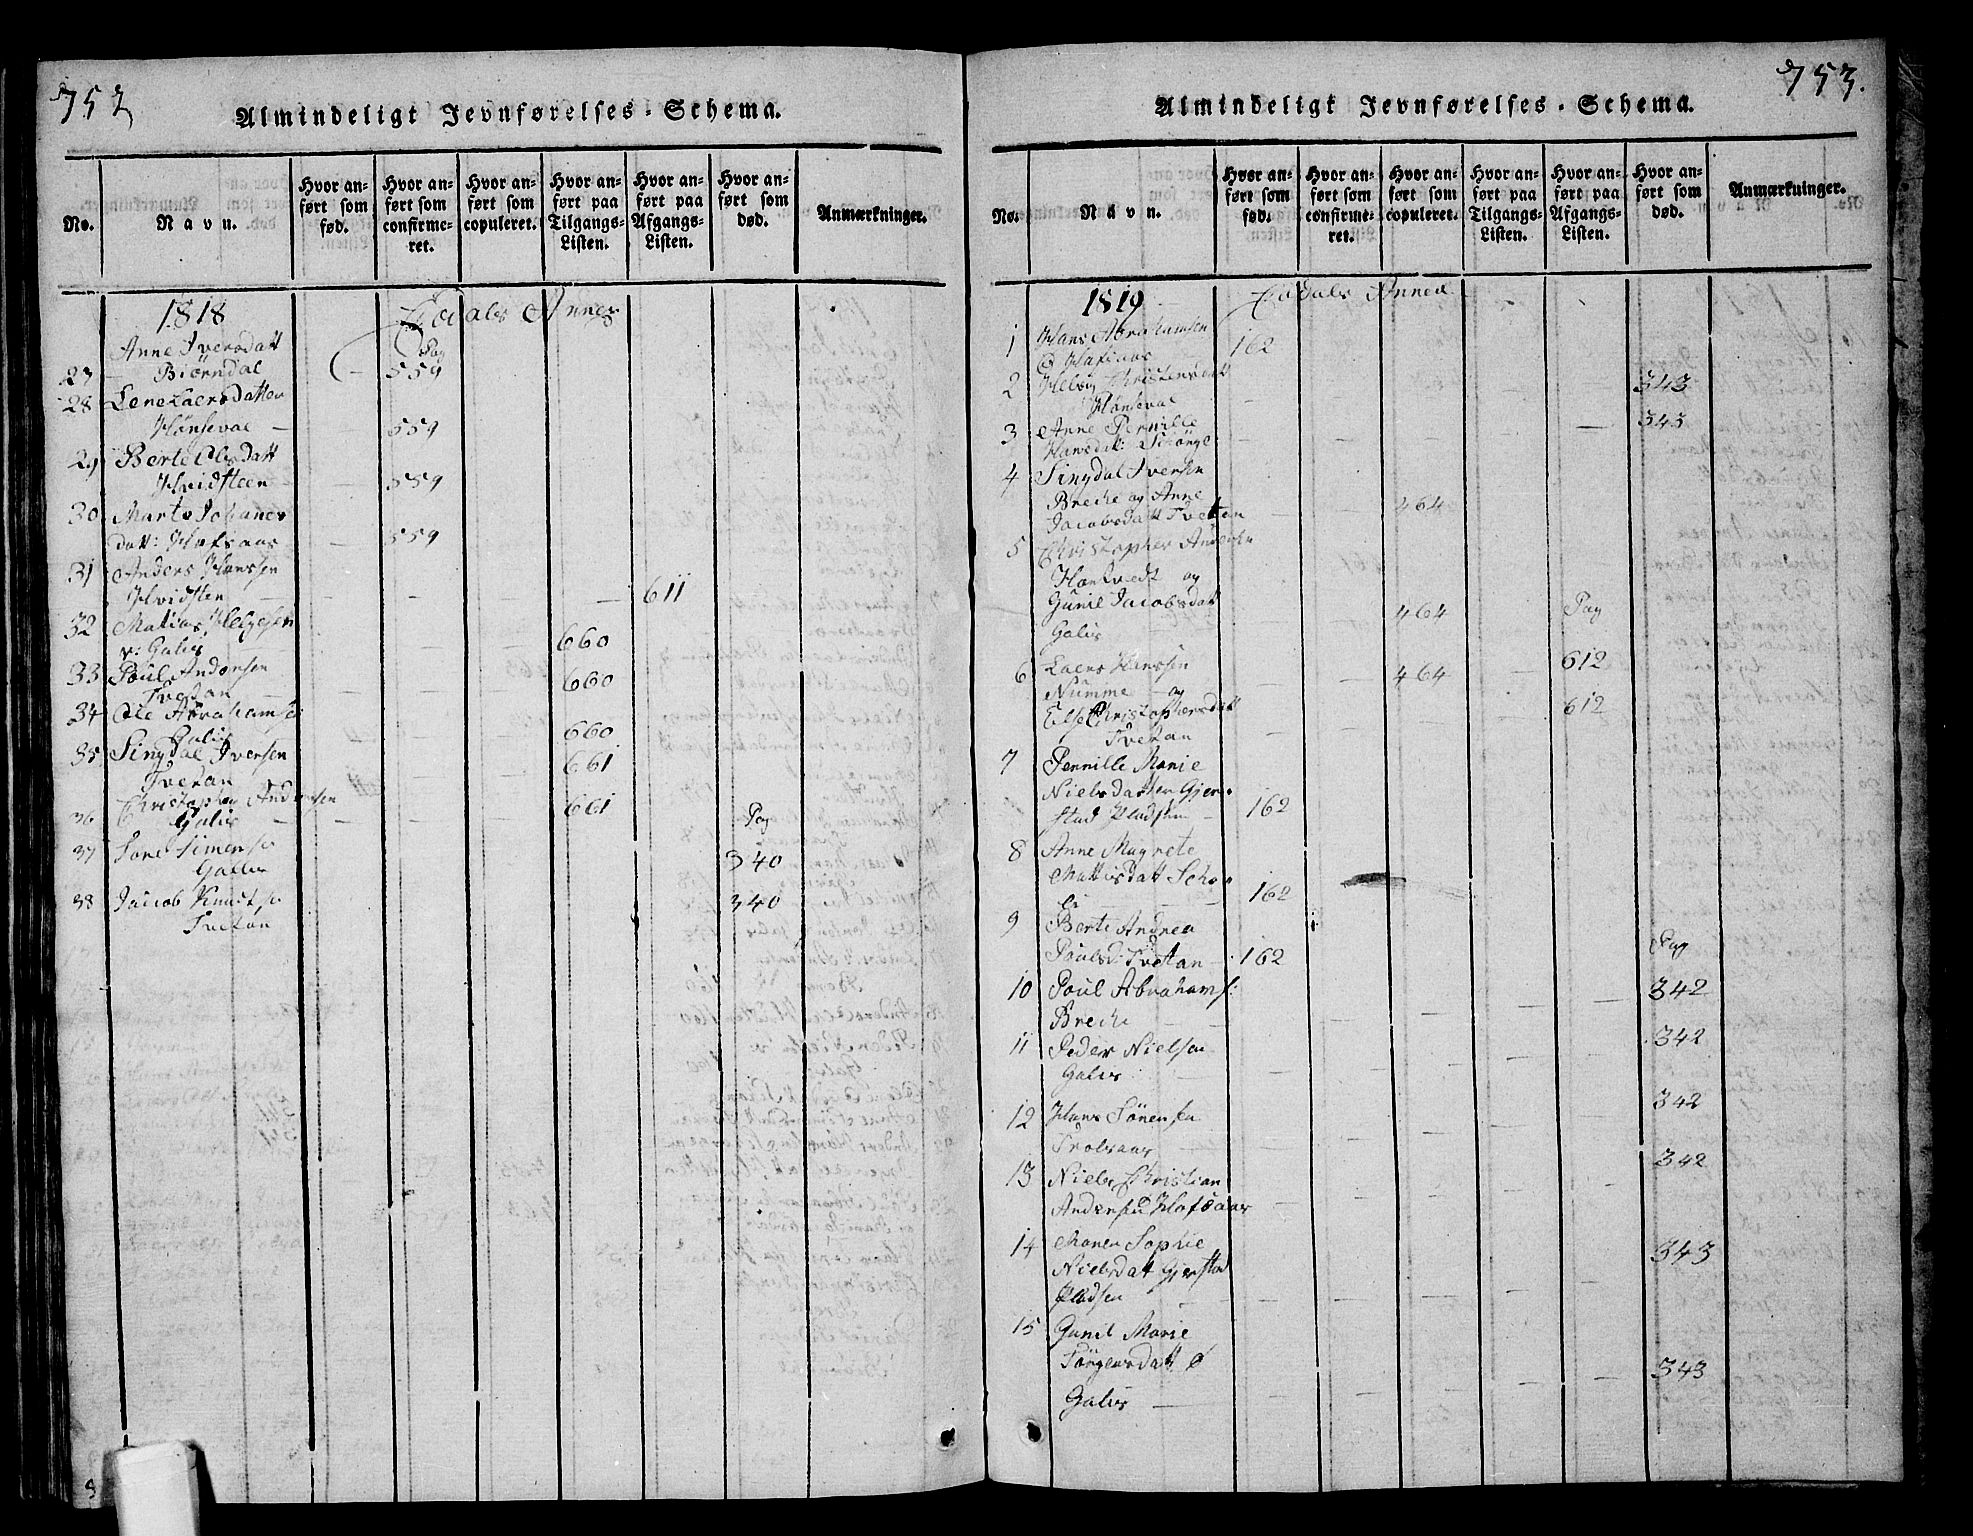 752
Almindeligt Jevnførelses-Schema.
No.
Navn.
Hvor anført som fød.
Hvor anført som confirmeret.
Hvor anført som copuleret.
Hvor anført paa Tilgangs-Listen.
Hvor anført paa Afgangs-Listen.
Hvor anført som død.
Anmærkninger.
1818 Eidals Annex
Anne Iversdatt Pag
27 Biørndal 559
28 Lene Laersdatter
Hønseval 559
29 Berte Olsdatt
Hvidsteen 559
30 Marte Johanes
datt: Hafsaas 559
31 Anders Hanssen
Hvidsten 611
32 Matias Helgesen
v: Galis 660
33 Poul Andersen
Tvetan 660
34 Ole Abrahamsen
Galis 660
35 Singdal Iversen 661
Tvetan
Christopher Andersen
36 Galis 661 Pag
37 Tone Simens
Galis 340
38 Jacob Knuts 340
Tvetan
753.
Almindeligt Jevnførelses-Schema.
No.
Navn.
Hvor anført som fød.
Hvor anført som confirmeret.
Hvor anført som copuleret.
Hvor anført paa Tilgangs-Listen.
Hvor anført paa Afgangs-Listen.
Hvor anført som død.
Anmærkninger.
1819 Eidals Annex
1 Hans Abrahamsen
Hafsaas 162
2 Helvig Christensdatt 343
Hønseval
3 Anne Pernille 343
Hansdatt:
4 Singdal Iversen
Breche og Anne 464
Jacobsdatt Tvetan
5 Christopher Andersen
Hantvedt og
Gunil Jacobsdatt 464 Pag
Galis
6 Laers Hanssen 464 612
Numme og
Else Christophersdatt 612
Tvetan
7 Pernille Marie
Nielsdatter Gjer-
stad Pladsen 162
8 Anne Magrete
Mattisdatt
162
9 Berte Andrea Pag
Poulsd: Tvetan 162
10 Poul Abrahams: 342
Breche
11 Peder Nielsen 342
Galis
12 Hans Sörensen 342
13 Niels Christian 342
Andersen Hafsaas
14 Maren Sophie 343
Nielsdatt Gjerstad
Pladsen
15 Gunil Marie
Jörgensdatt 343
Galis